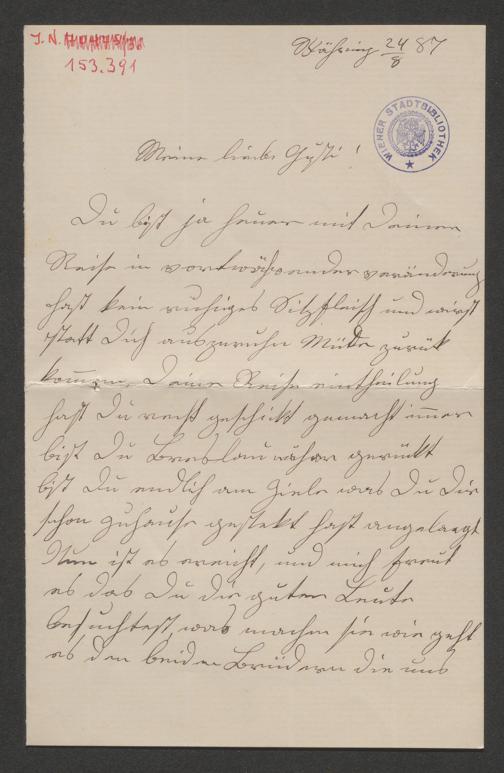 J. N.
153.391
Währing 24/8 87
WIENER STADTBIBLIOTHEK
Meine liebe Gusti!
Du bist ja heuer mit Deiner
Reise in vortwährender veränderung
hast kein ruhiges Sitzfleisch und wirst
statt Dich auszuruhn Müde zurük
kommen, Deine Reise eintheilung
hast Du recht geschikt gemacht immer
bist Du Breslau näher gerükt
bist Du endlich am Ziele was Du Dir
schon zuhause gestekt hast angelangt
Nun ist es ereicht, und mich freut
es das Du die guten Leute
besuchtest, was machen sie wie geht
es den beiden Brüdern die uns